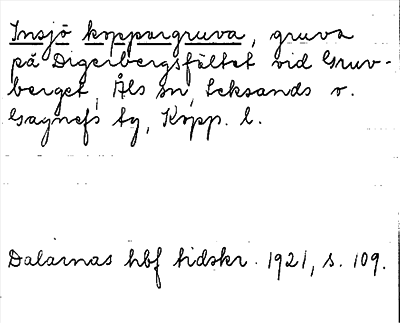 Insjö koppargruva, gruva
på Digerbergsfältet vid Gruv-
berget, Åls sn, Leksands o.
Gagnefs tg, Kopp. l.
Dalarnas hbf tidskr. 1921, s. 109.